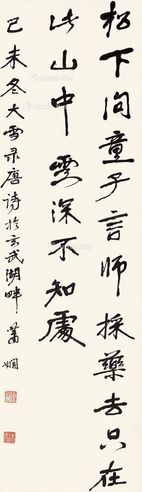 松下问童子言師採藥去只在
此山中雲深不知處
己未冬大雪录唐诗於玄武湖畔 萧娴